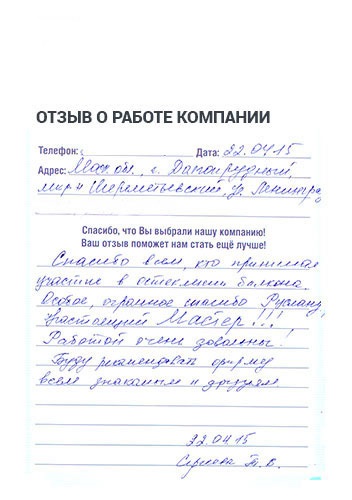 ОТЗЫВ О РАБОТЕ КОМПАНИИ
Телефон: Дата: 22.04.15
Адрес: Моск. обл., г. Долгопрудный,
мкр-н Шереметьевский, ул.
Спасибо, что Вы выбрали нашу компанию!
Ваш отзыв поможет нам стать ещё лучше!
Спасибо всем, кто принимал
участие в остеклении балкона.
Особое, огромное спасибо Руслану,
настоящий Мастер!!!
Работой очень довольны!
Буду рекомендовать фирму
всем знакомым и друзьям
22.04.15